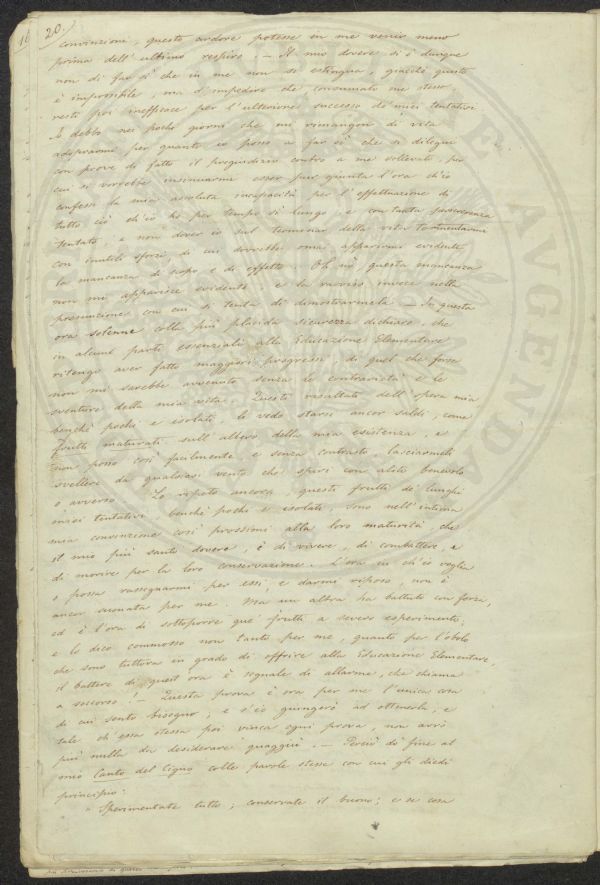 16 20.)
convinzioni, questo ardore potesse in me venir meno
prima dell'ultimo respiro. — Il mio dovere si è dunque
non di far sì che in me non si estingua, giacchè questo
è impossibile, ma d'impedire che consumato me stesso,
resti poi inefficace per l'ulteriore successo de' miei tentativi.
Io debbo nei pochi giorni che mi rimangon di vita
adoprarmi per quanto io posso a far sì che si dilegui
con prove di fatto il pregiudizio contro a me sollevato, per
cui si vorrebbe insinuarmi esser pur giunta l'ora ch'io
confessi la mia assoluta incapacità per l'effettuazione di
tutto ciò ch'io ho per tempo sì lungo, e con tanta perseveranza
tentato; e non dover io sul terminar della vita tormentarmi
con inutili sforzi, di cui dovrebbe omai apparirmi evidente
la mancanza di scopo e di effetto. Oh no, questa mancanza
non mi apparisce evidente, e la ravviso invece nella
presunzione con cui si tenta di dimostrarmela. — In questa
ora solenne colla più placida sicurezza dichiaro, che
in alcune parti essenziali alla Educazione Elementare
ritengo aver fatto maggiori progressi, di quel che forse
non mi sarebbe avvenuto senza le contrarietà e le
sventure della mia vita. Questi resultati dell'opera mia
benchè pochi e isolati, io vedo starsi ancor saldi, come
frutti maturati sull'albero della mia esistenza, e
non posso così facilmente e senza contrasto, lasciarmeli
svellere da qualsiasi vento che spiri con alito benevolo
o avverso. Lo ripeto ancora, questi frutti de' lunghi
miei tentativi, benchè pochi e isolati, sono nell'intima
mia convinzione così prossimi alla loro maturità, che
il mio più santo dovere, è di vivere, di combattere, e
di morire per la loro conservazione. L'ora in ch'io voglia
o possa rassegnarmi per essi, e darmi riposo, non è
ancor suonata per me. Ma un altra ha battuto con forza,
ed è l'ora di sottoporre que' frutti a severo esperimento;
e lo dico commosso non tanto per me, quanto per l'obolo
che sono tuttora in grado di offrire alla Educazione Elementare,
il battere di quest'ora è segnale di allarme, che chiama
a soccorso! — Questa prova è ora per me l'unica cosa
di cui sento bisogno; e s'io giungerò ad ottenerla, e
tale ch'essa stessa poi vinca ogni prova, non avrò
più nulla da desiderare quaggiù. — Perciò do fine al
mio Canto del Cigno colle parole stesse con cui gli diedi
principio:
" Sperimentate tutto; conservate il buono; e se cosa